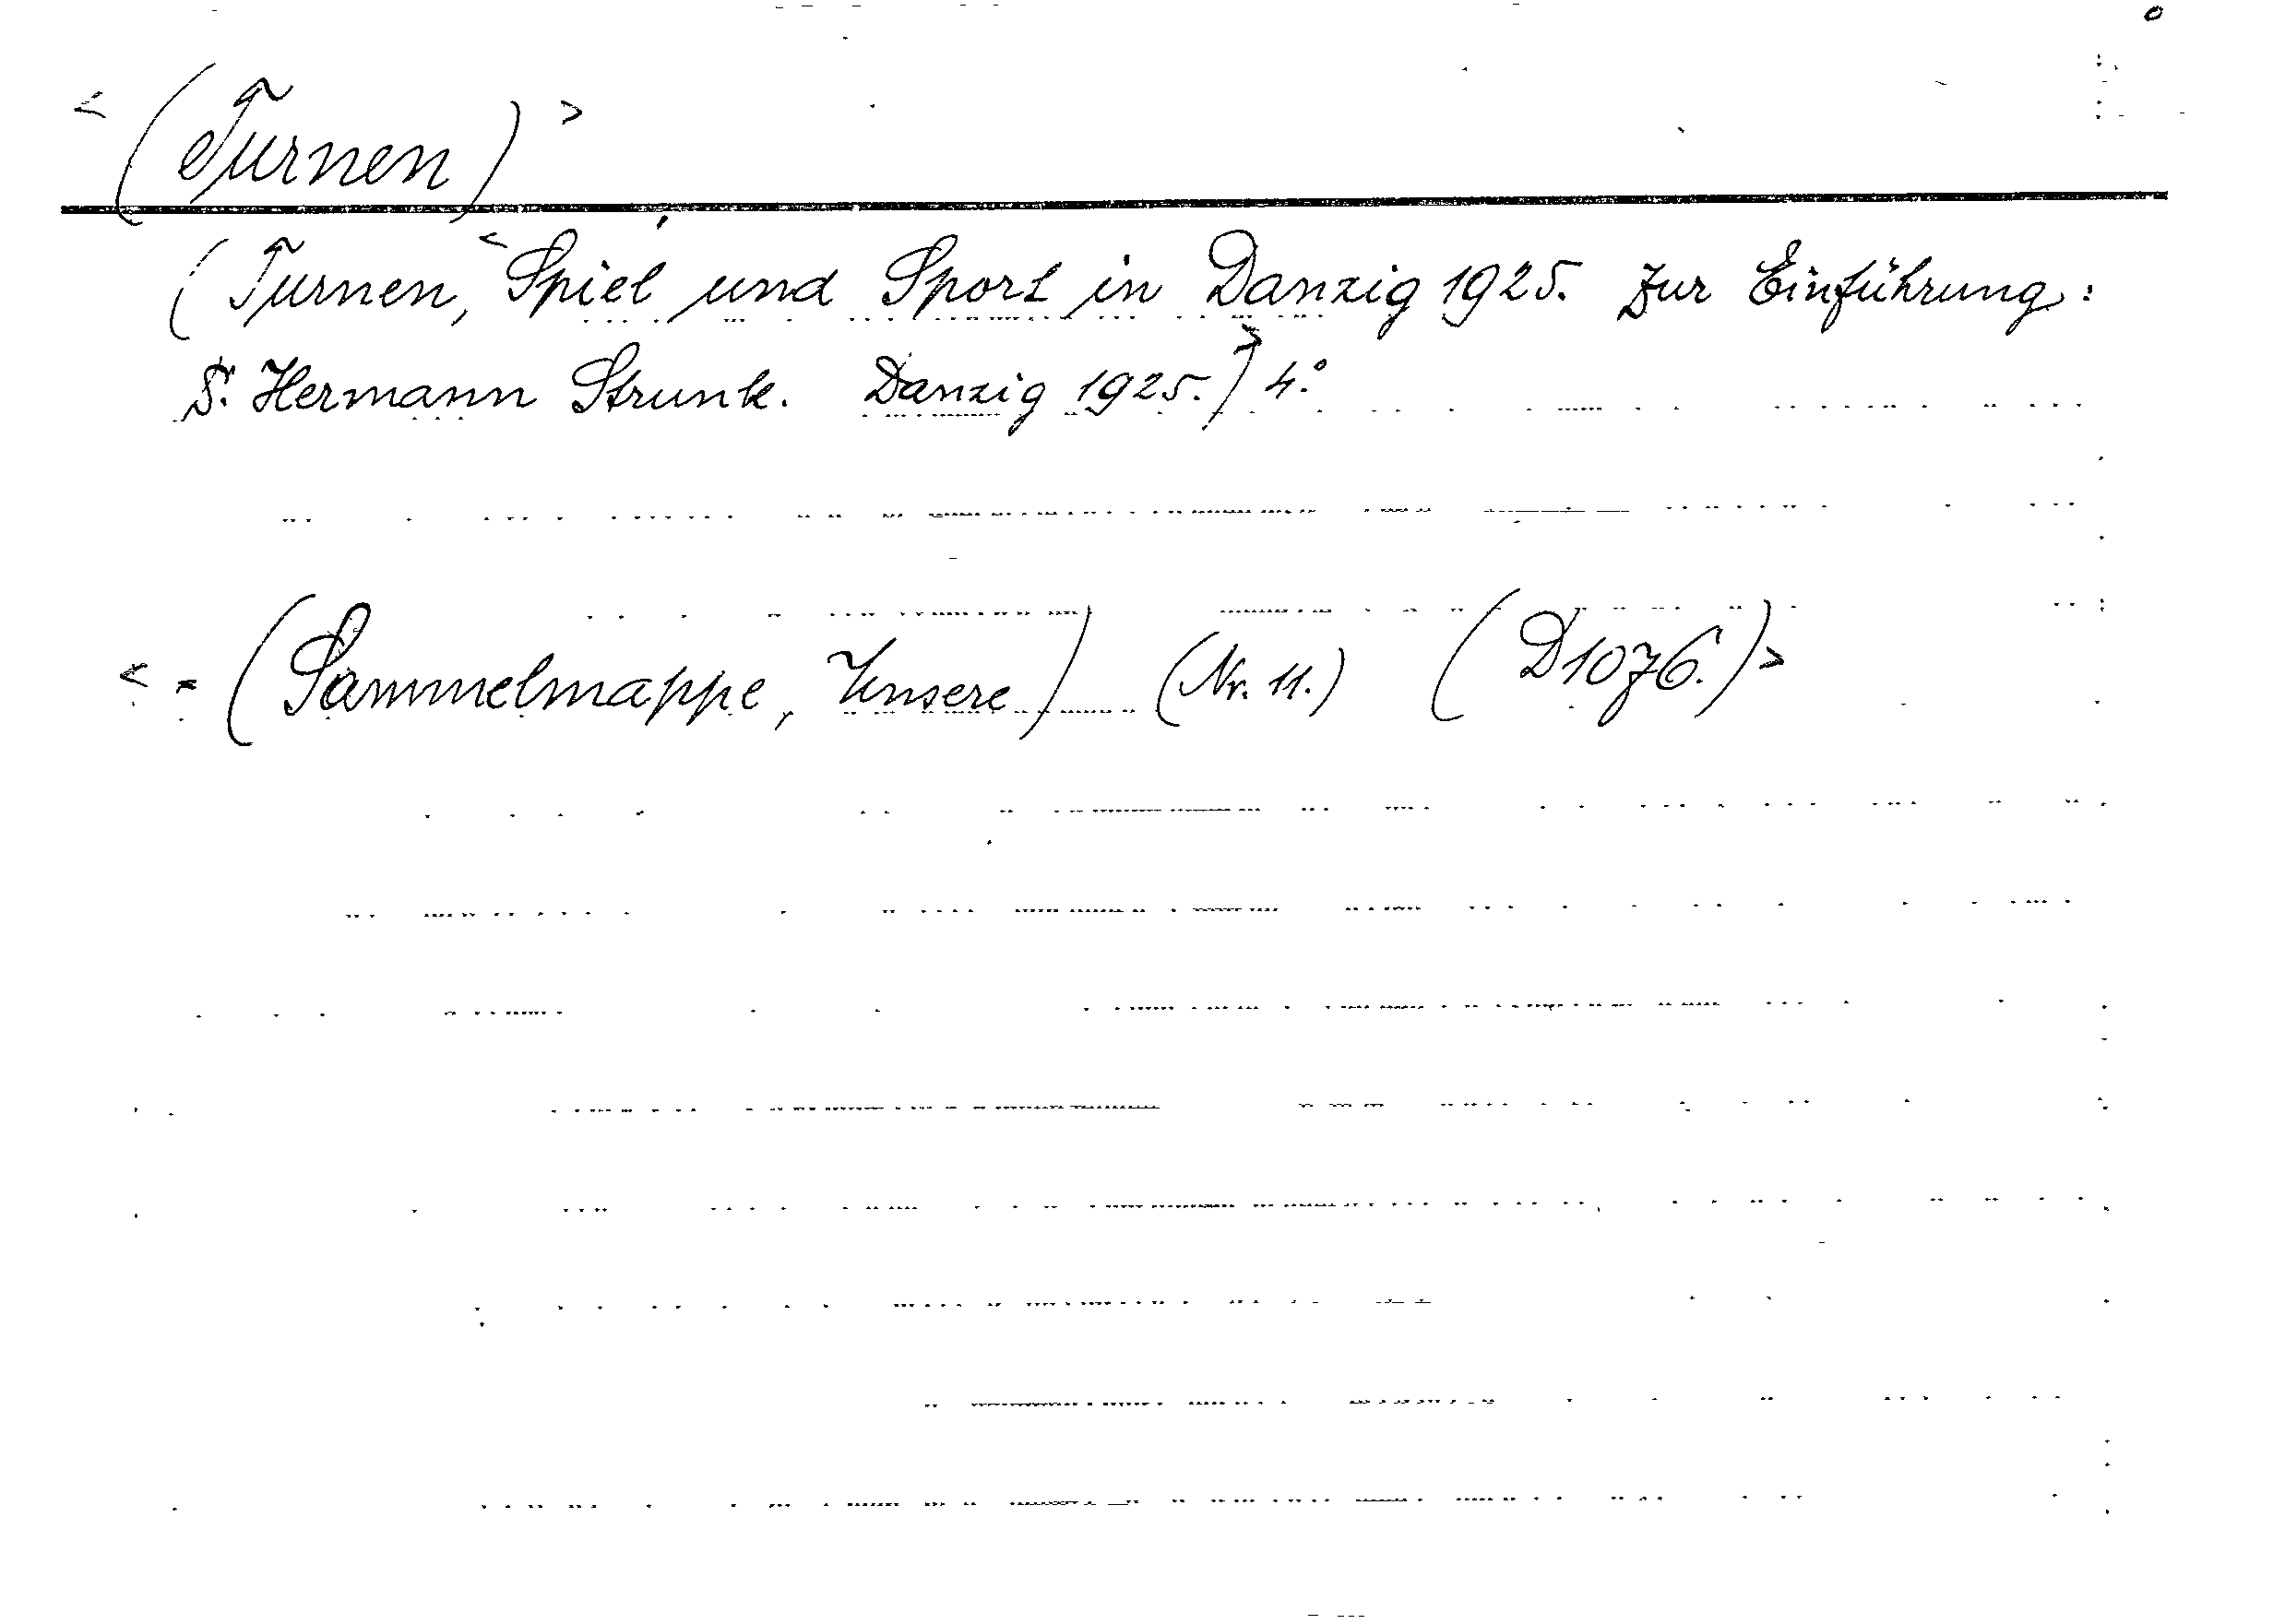 <(Turnen)>
(Turnen, <Spiel und Sport in Danzig 1925. Zur Einführung:
Dr. Hermann Strunk. Danzig 1925.>) 4.°
< = (Sammelmappe, Unsere) (Nr. 11.) (D1076.)>